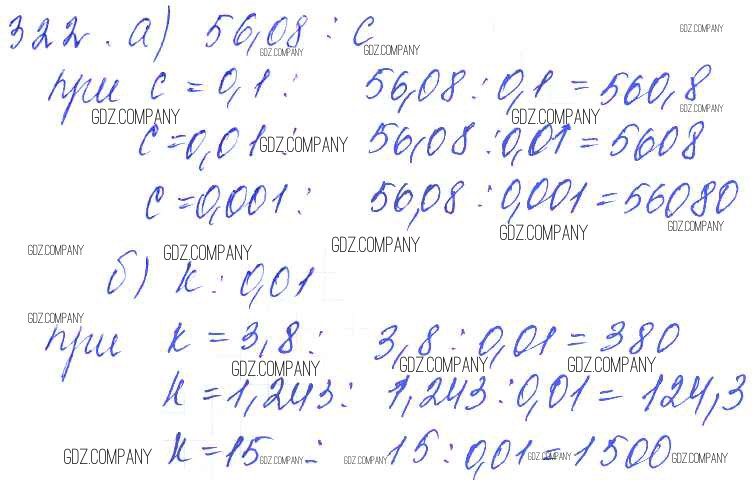 322. а) 56,08 : с
GDZ.COMPANY GDZ.COMPANY GDZ.COMPANY
при с = 0,1 : 56,08 : 0,1 = 560,8
GDZ.COMPANY GDZ.COMPANY GDZ.COMPANY
с = 0,01 : 56,08 : 0,01 = 5608
GDZ.COMPANY
с = 0,001 : 56,08 : 0,001 = 56080
GDZ.COMPANY GDZ.COMPANY GDZ.COMPANY GDZ.COMPANY GDZ.COMPANY
б) к : 0,01
GDZ.COMPANY
при к = 3,8 : 3,8 : 0,01 = 380
GDZ.COMPANY GDZ.COMPANY GDZ.COMPANY
к = 1,243 : 1,243 : 0,01 = 124,3
к = 15 : 15 : 0,01 = 1500
GDZ.COMPANY GDZ.COMPANY GDZ.COMPANY GDZ.COMPANY GDZ.COMPANY